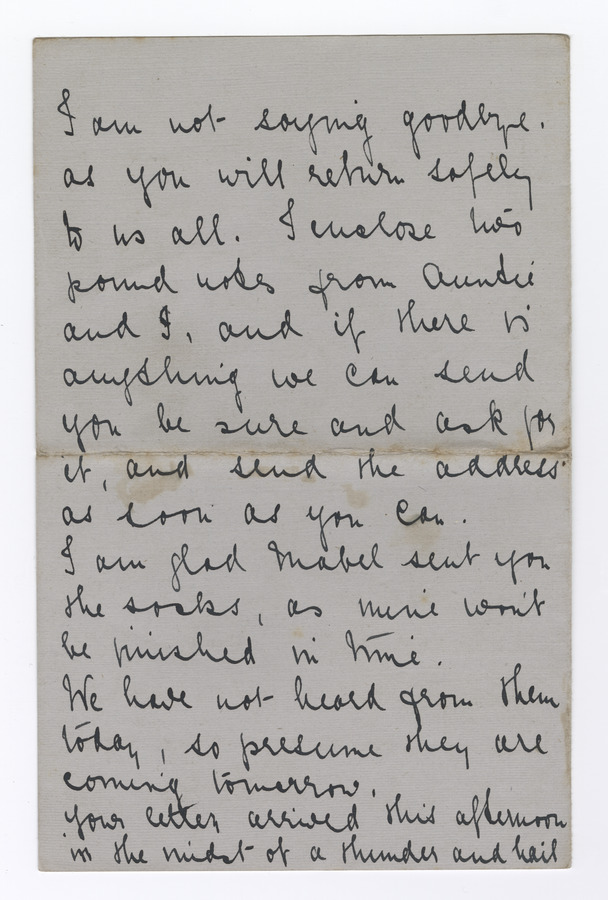 I am not saying goodbye.
as you will return safely
to us all. I enclose two
pound notes from Auntie
and I, and if there is
anything we can send
you be sure and ask for
it, and send the address
as soon as you can.
I am glad Mabel sent you
the socks, as mine won't
be finished in time.
We have not heard from them
today, so presume they are
coming tomorrow.
your letter arrived this afternoon
in the midst of a thunder and hail